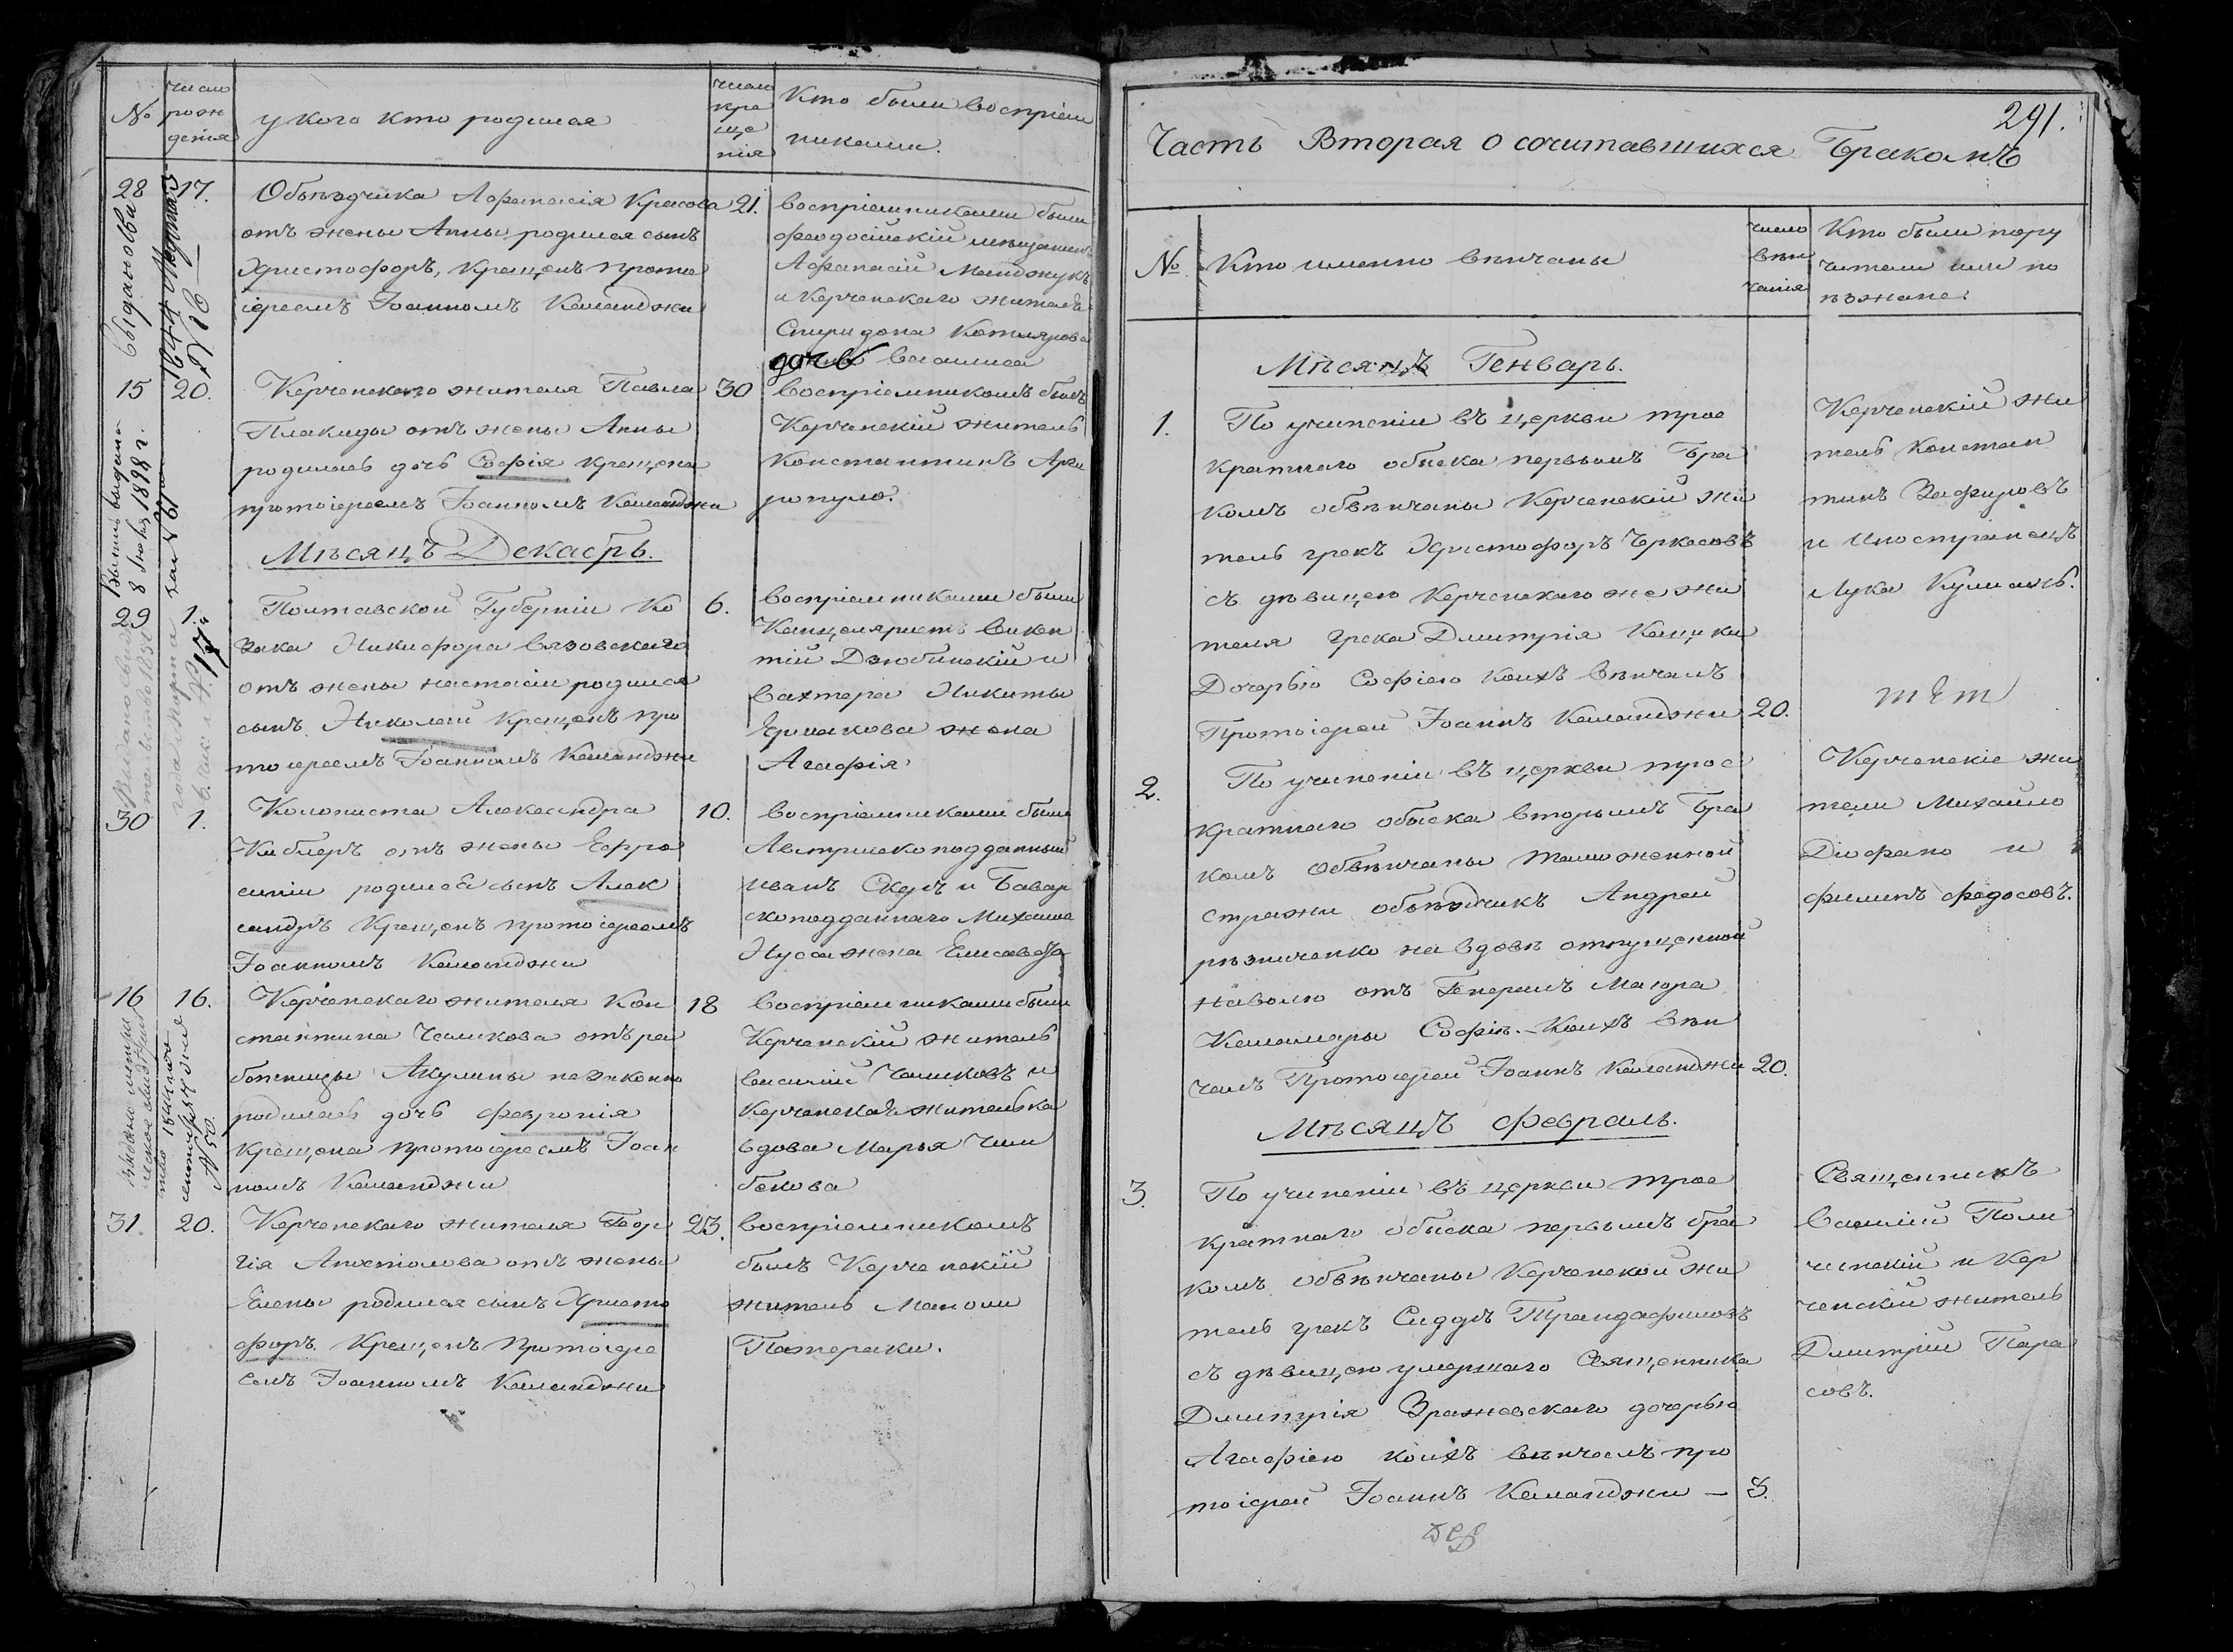 №
число
рож
денія
у кого кто родился
число
кре
ще
нія
Кто были воспріем
никами.
28
17.
Объѣздчика Афанасія Красова
отъ жены Анны родился сынъ
Христофоръ, Крещенъ прото
іереемъ Іоанномъ Каманджи
21.
воспріемниками были
феодосійскій мещанинъ
Афанасій
и Керченскаго жителя
Спиридона Котлярова
дочь Василиса
15
20.
Керченскаго жителя Павла
Плакиды отъ жены Анны
родилась дочь Софія крещена
протоіереемъ Іоанномъ Каманджи
30
воспріемникомъ былъ
Керченскій житель
Константинъ Арги
ропуло.
Мѣсяцъ Декабрь.
29
1.
Полтавской Губерніи Ко
зака Никифора Вязовскаго
отъ жены настасіи родился
сынъ Николай Крещенъ про
тоіереемъ Іоанномъ Каманджи
6.
воспріемниками были
Канцеляристъ Викен
тій Дзюбинскій и
вахтера Никиты
Ермакова жена
Агафія
30
1.
Колониста Александра
Киблеръ отъ жены Ефро
синіи родился сынъ Алек
сандръ Крещенъ протоіереемъ
Іоанномъ Каманджи
10.
воспріемниками были
Австрійскоподданный
Иванъ и Бавар
скоподданнаго Михаила
Нуса жена Елисавета
16
16.
Керченскаго жителя Кон
стантина Чамкова отъ ра
ботницы Акулины незаконно
родилась дочь февронія
Крещена протоіереемъ Іоан
номъ Каманджи
18
воспріемниками были
Керченскій житель
василій Чамковъ и
Керченская жителька
вдова Марья Чели
бекова
31.
20.
Керченскаго жителя Геор
гія Апостолова отъ жены
Елены родился сынъ Христо
форъ Крещенъ протоіере
емъ Іоанномъ Каманджи
23.
воспріемникомъ
былъ Керченскій
житель Маноли
Патераки.
выдано
1844
№ 16
выдана
8 1898 г.
за №
Выдано
1852
года марта
№ 17
выдано метри
ческое
тво
сентября дня
№ 50.
291.
Часть Вторая о сочитавшихся Бракомъ
№
Кто именно вѣнчаны
число
вѣн
чанія
Кто были пору
чители или по
ѣзжане.
Мѣсяцъ Генварь.
1.
По учиненіи въ церкви трое
кратнаго обыска первымъ Бра
комъ обвѣнчаны Керченскій жи
тель грекъ Христофоръ Черкесовъ
съ дѣвицею Керченскаго же жи
теля грека Дмитрія Кацики
Дочерью Софіею коихъ вѣнчалъ
Протоіерей Іоаннъ Каманджи
20.
Керченскій жи
тель Констан
тинъ Зафировъ
и Иностранецъ
Лука
2.
По учиненіи въ церкви трое
кратнаго обыска вторымъ Бра
комъ обвѣнчаны таможенной
стражи объѣздчикъ Андрей
рѣзниченко на вдовѣ отпущенной
наволю отъ Генералъ Маіора
Каламары Софіѣ. Коихъ вѣн
чалъ Протоіерей Іоаннъ Каманджи
20.
Керченскіе жи
тели Михайло
Діофано и
филипъ федосовъ.
Мѣсяцъ февраль.
3.
По учиненіи въ церкви трое
кратнаго обыска первымъ бра
комъ обвѣнчаны Керченскій жи
тель грекъ Трандафиловъ
съ дѣвицею умершаго Священника
Дмитрія Вражевскаго дочерью
Агафіею коихъ вѣнчалъ про
тоіерей Іоаннъ Каманджи –
8.
Священникъ
Василій Поли
ченскій и Кер
ченскій житель
Дмитрій Пара
совъ.